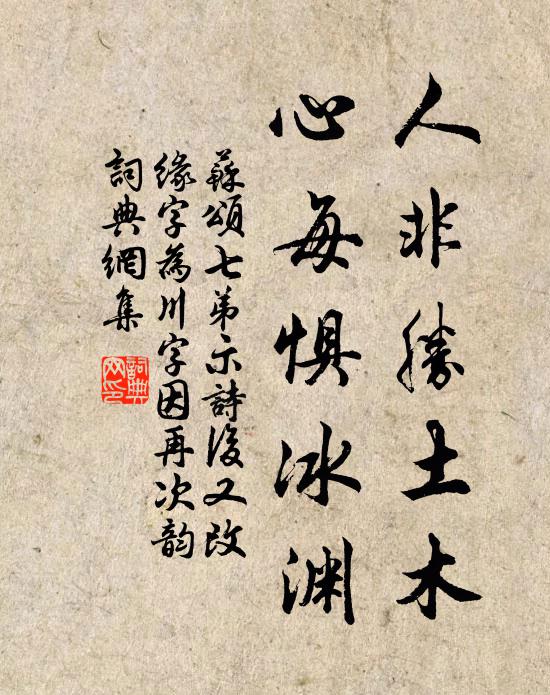 人非勝土木
心每懼冰淵
蘇頌七弟示詩後又改
緣字為川字因再次韵
詞典網集
詞典
网印